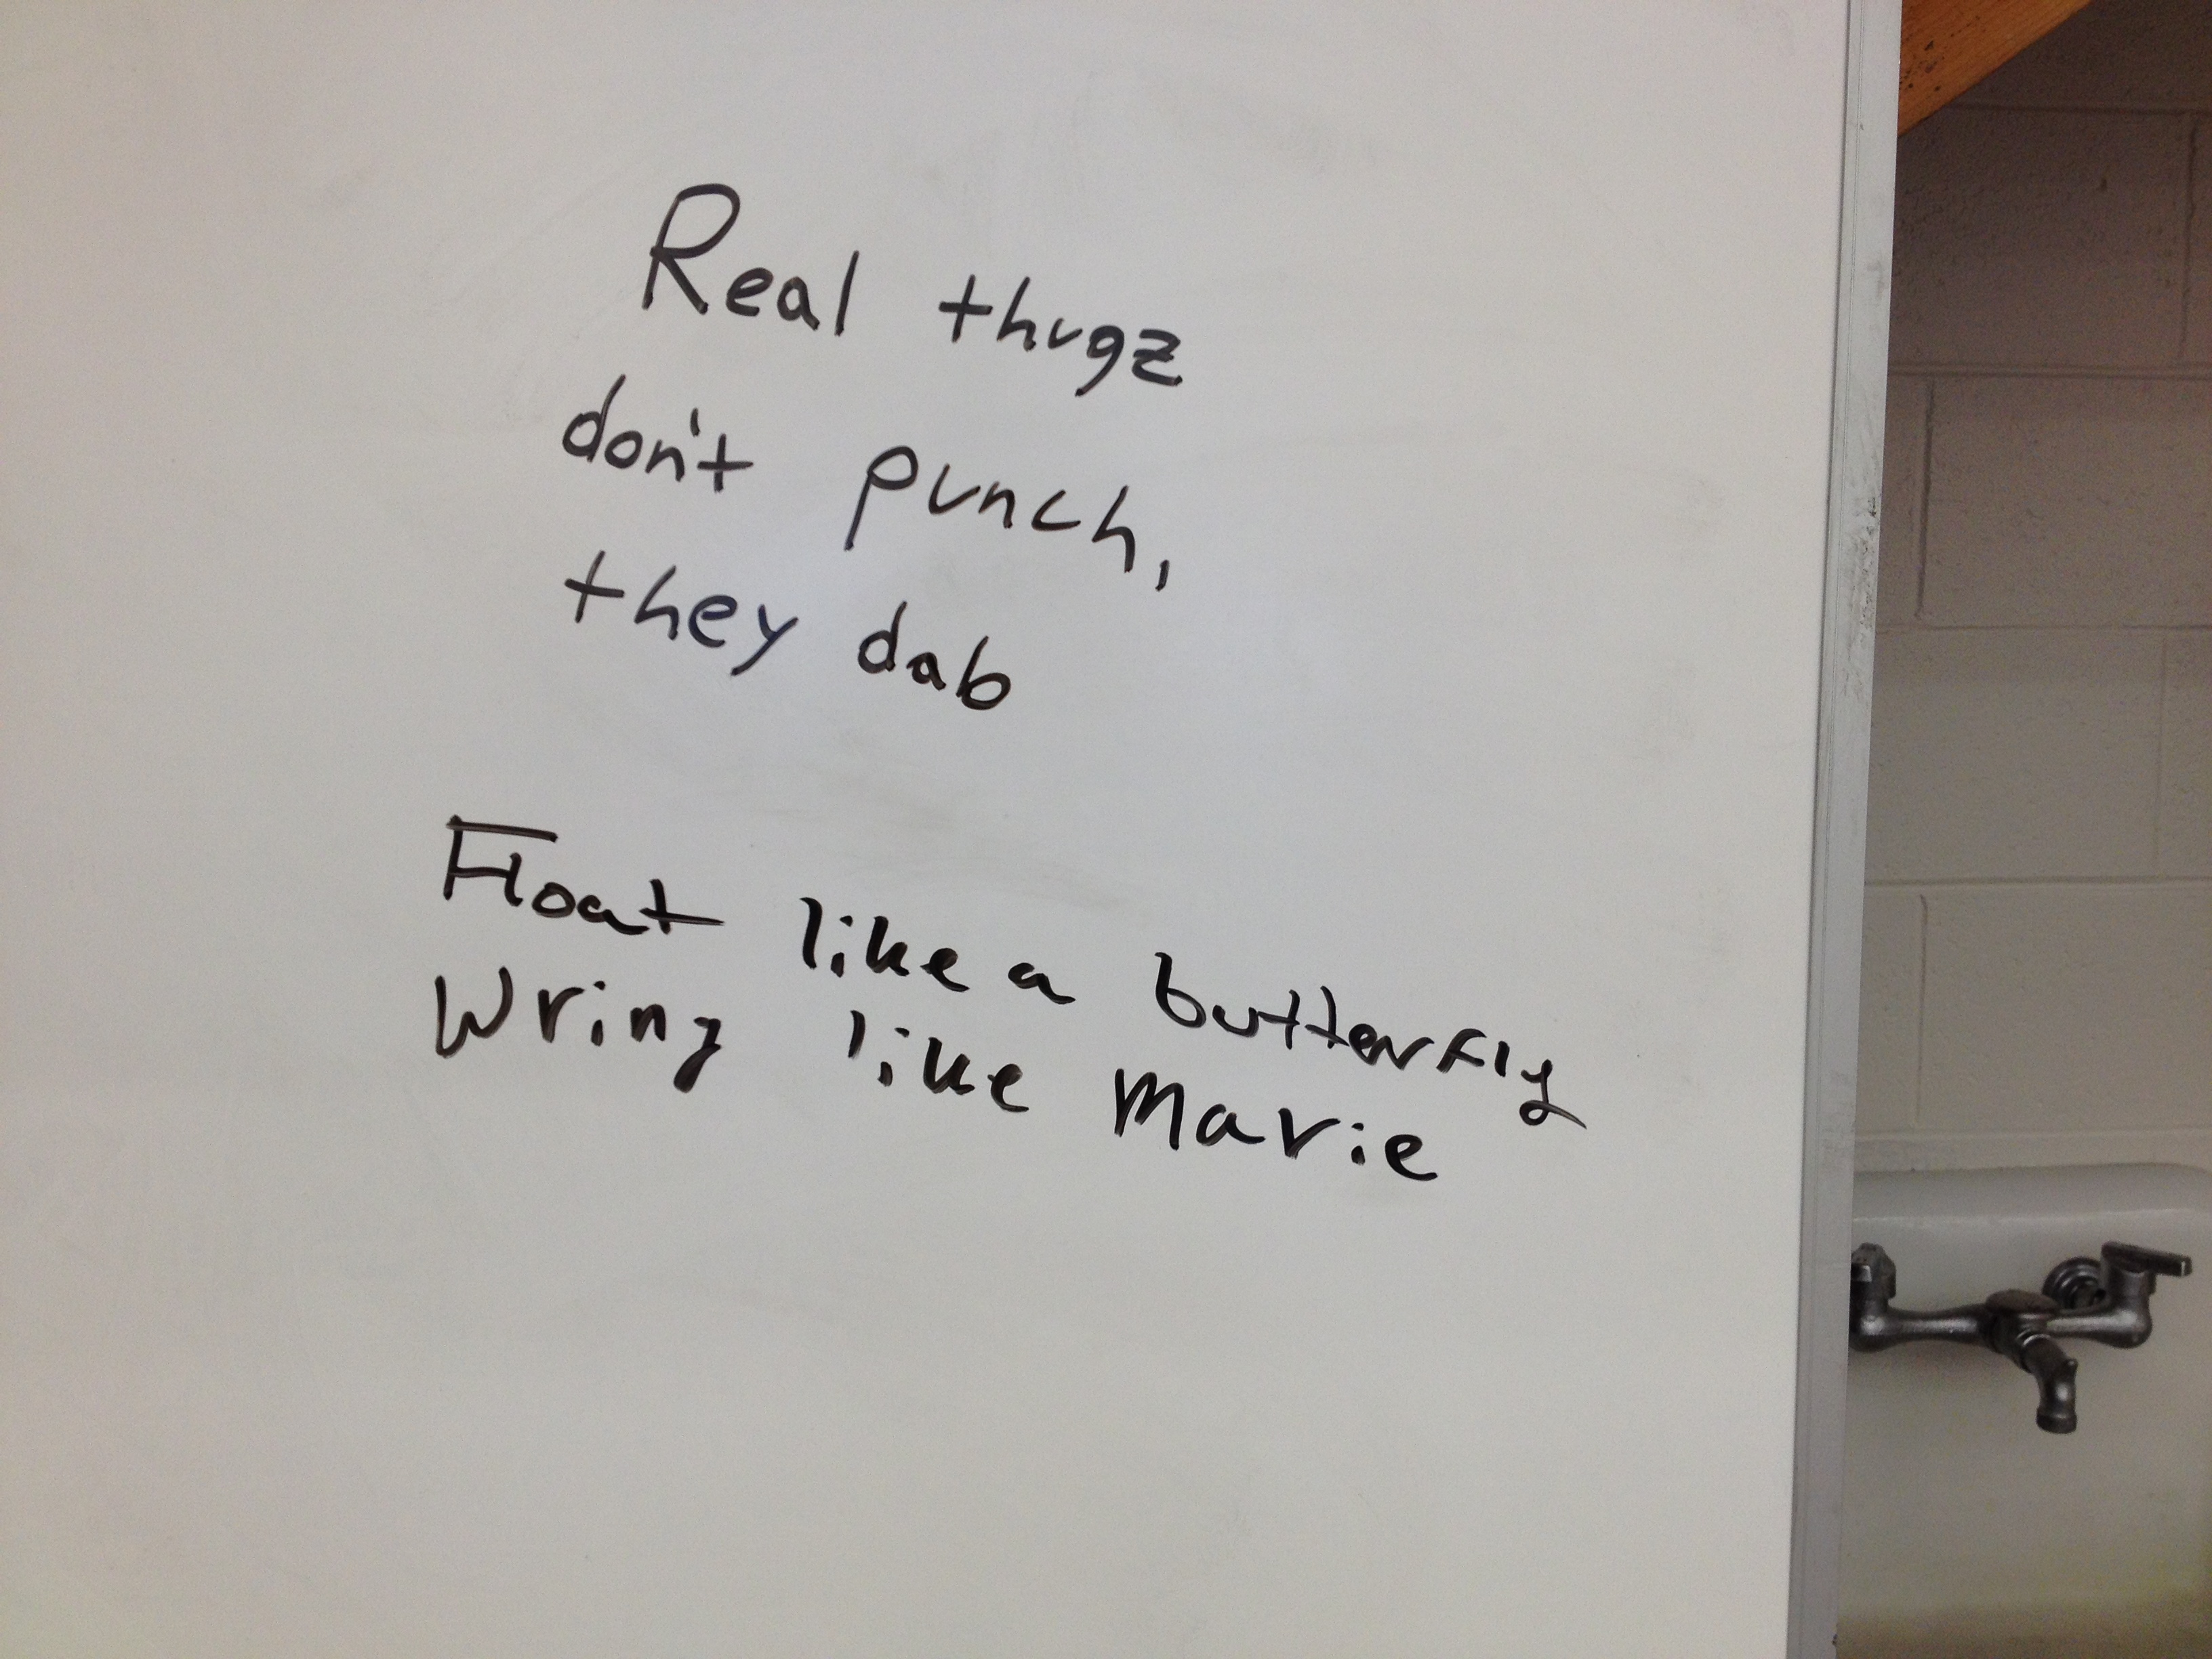 Real thugz
don't punch,
they dab
Float like a butterfly
Wring like Marie